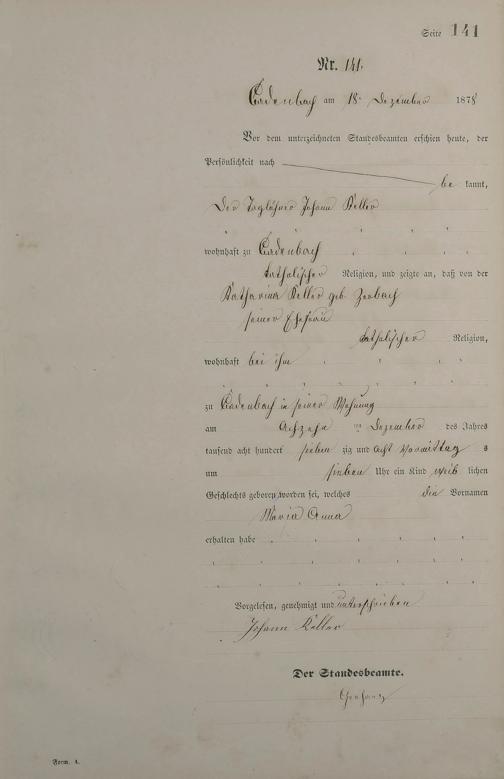 Seite 141
Nr. 141.
Cadenbach am 18. Dezember 1878
Vor dem unterzeichneten Standesbeamten erschien heute, der
Persönlichkeit nach
be kannt,
Der Taglöhner Johann Keller
wohnhaft zu Cadenbach
katholischer Religion, und zeigte an, daß von der
Katharina Keller geb. Zerbach
seiner Ehefrau
katholischer Religion,
wohnhaft bei ihm
zu Cadenbach in seiner Wohnung
am Achzehn ten Dezember des Jahres
tausend acht hundert sieben zig und acht Vormittag s
um sieben Uhr ein Kind weib lichen
Geschlechts geboren worden sei, welches die Vornamen
Maria Anna
erhalten habe
Vorgelesen, genehmigt und unterschrieben
Johann Keller
Der Standesbeamte.
Form. A.